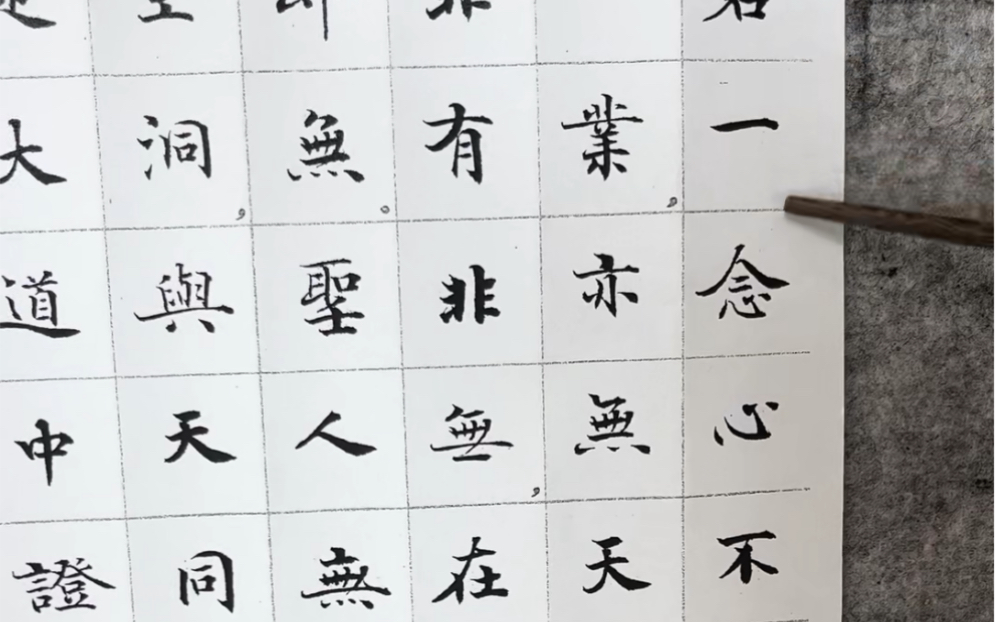 一念心不
業，亦無天
有非無，在
無。聖人無
洞，與天同
大道中證